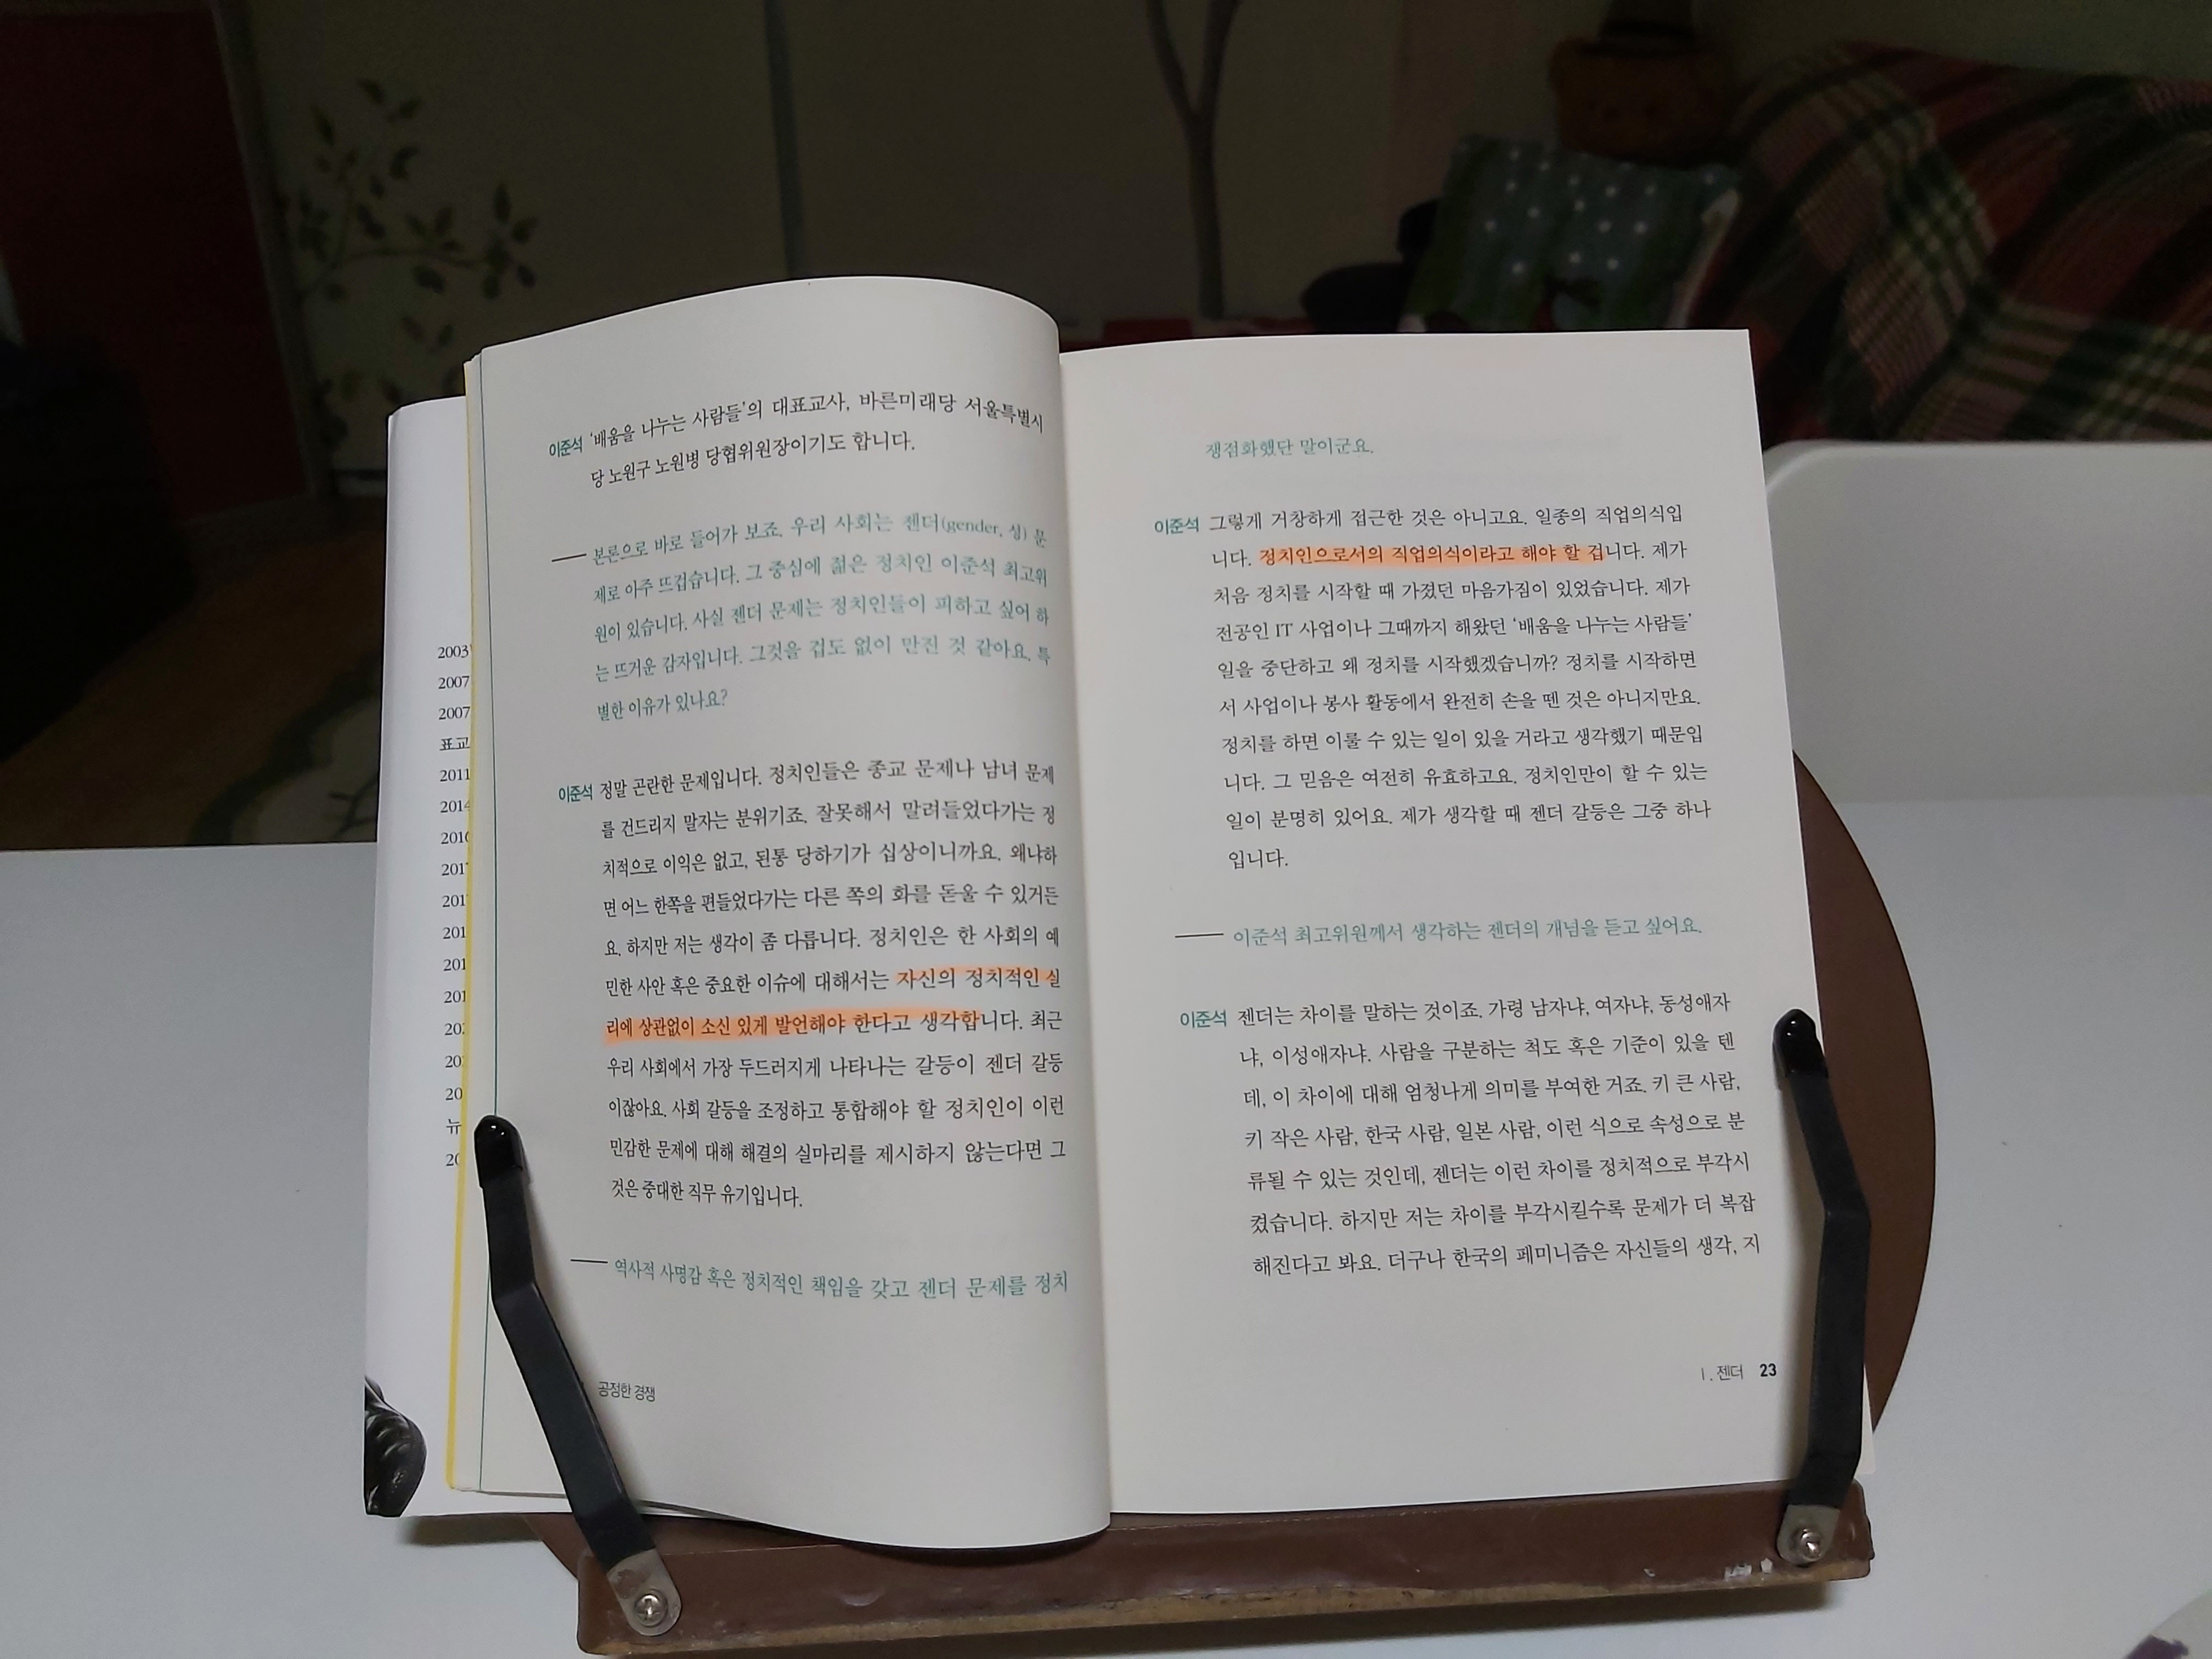 2003
2007
2007
표교
2011
2014
201
201
201
201
201
201
20
20
20
뉴
20
이준석 '배움을 나누는 사람들'의 대표교사, 바른미래당 서울특별시
당 노원구 노원병 당협위원장이기도 합니다.
── 본론으로 바로 들어가 보죠. 우리 사회는 젠더(gender, 성) 문
제로 아주 뜨겁습니다. 그 중심에 젊은 정치인 이준석 최고위
원이 있습니다. 사실 젠더 문제는 정치인들이 피하고 싶어 하
는 뜨거운 감자입니다. 그것을 겁도 없이 만진 것 같아요. 특
별한 이유가 있나요?
이준석 정말 곤란한 문제입니다. 정치인들은 종교 문제나 남녀 문제
를 건드리지 말자는 분위기죠. 잘못해서 말려들었다가는 정
치적으로 이익은 없고, 된통 당하기가 십상이니까요. 왜냐하
면 어느 한쪽을 편들었다가는 다른 쪽의 화를 돋울 수 있거든
요. 하지만 저는 생각이 좀 다릅니다. 정치인은 한 사회의 예
민한 사안 혹은 중요한 이슈에 대해서는 자신의 정치적인 실
리에 상관없이 소신 있게 발언해야 한다고 생각합니다. 최근
우리 사회에서 가장 두드러지게 나타나는 갈등이 젠더 갈등
이잖아요. 사회 갈등을 조정하고 통합해야 할 정치인이 이런
민감한 문제에 대해 해결의 실마리를 제시하지 않는다면 그
것은 중대한 직무 유기입니다.
── 역사적 사명감 혹은 정치적인 책임을 갖고 젠더 문제를 정치
공정한 경쟁
쟁점화했단 말이군요.
이준석 그렇게 거창하게 접근한 것은 아니고요. 일종의 직업의식입
니다. 정치인으로서의 직업의식이라고 해야 할 겁니다. 제가
처음 정치를 시작할 때 가졌던 마음가짐이 있었습니다. 제가
전공인 IT 사업이나 그때까지 해왔던 '배움을 나누는 사람들'
일을 중단하고 왜 정치를 시작했겠습니까? 정치를 시작하면
서 사업이나 봉사 활동에서 완전히 손을 뗀 것은 아니지만요.
정치를 하면 이룰 수 있는 일이 있을 거라고 생각했기 때문입
니다. 그 믿음은 여전히 유효하고요. 정치인만이 할 수 있는
일이 분명히 있어요. 제가 생각할 때 젠더 갈등은 그중 하나
입니다.
── 이준석 최고위원께서 생각하는 젠더의 개념을 듣고 싶어요.
이준석 젠더는 차이를 말하는 것이죠. 가령 남자냐, 여자냐, 동성애자
냐, 이성애자냐. 사람을 구분하는 척도 혹은 기준이 있을 텐
데, 이 차이에 대해 엄청나게 의미를 부여한 거죠. 키 큰 사람,
키 작은 사람, 한국 사람, 일본 사람, 이런 식으로 속성으로 분
류될 수 있는 것인데, 젠더는 이런 차이를 정치적으로 부각시
켰습니다. 하지만 저는 차이를 부각시킬수록 문제가 더 복잡
해진다고 봐요. 더구나 한국의 페미니즘은 자신들의 생각, 지
Ⅰ. 젠더 23